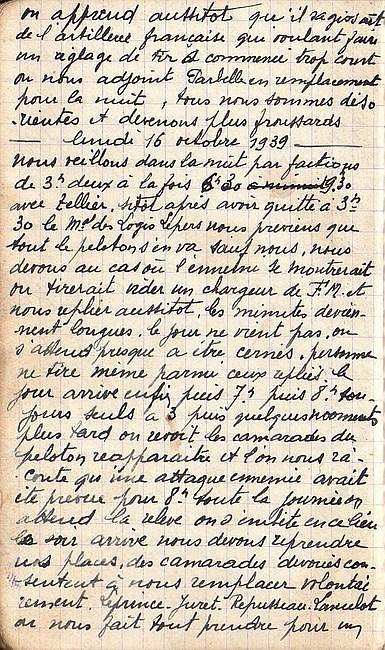 on apprend aussitot qu'il sagissait
de l'artillerie française qui voulant faire
un réglage de tir a commencé trop court
on nous adjoint Parbelle en remplacement
pour la nuit, tous nous sommes déso
rientés et devenons plus froussards
lundi 16 octobre 1939
nous veillons dans la nuit par factions
de 3h deux à la fois 6h30 à minuit 9.30
avec Tellier, sitot après avoir quitté à 3h
30 le Mal des Logis Lepers nous previens que
tout le peloton s'en va sauf nous, nous
devons au cas où l'ennemi se montrerait
ou tirerait vider un chargeur de F.M. et
nous replier aussitot, les minutes devien-
nent longues, le jour ne vient pas, on
s'attend presque a être cernés, personne
ne tire même parmi ceux repliés. le
jour arrive enfin puis 7h puis 8h tou-
jours seuls à 3 puis quelques moments
plus tard on revoit les camarades du
peloton reapparaitre et l'on nous ra-
conte qu'une attaque ennemie avait
été prévue pour 8h toute la journée on
attend la relève on s'embête en ce lieu
le soir arrive nous devons reprendre
nos places, des camarades dévoués con-
sentent à nous remplacer volontai
rement. Leprince-Juret-Repusseau-Lancelot
on nous fait tout prendre pour un